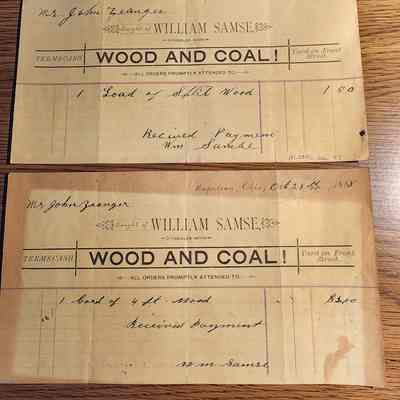 Mr John Zeanger
Bought of WILLIAM SAMSE,
DEALER IN
TERMS CASH WOOD AND COAL! Yard on Front Street.
ALL ORDERS PROMPTLY ATTENDED TO.
1 Load of Split Wood 1 50
Recived Payment
Wm Samse
Napoleon, Ohio, Oct 28 188
Mr John Zeanger
Bought of WILLIAM SAMSE,
DEALER IN
TERMS CASH WOOD AND COAL! Yard on Front Street.
ALL ORDERS PROMPTLY ATTENDED TO.
1 Cord of 4 ft Wood
Received Payment
Wm Samse